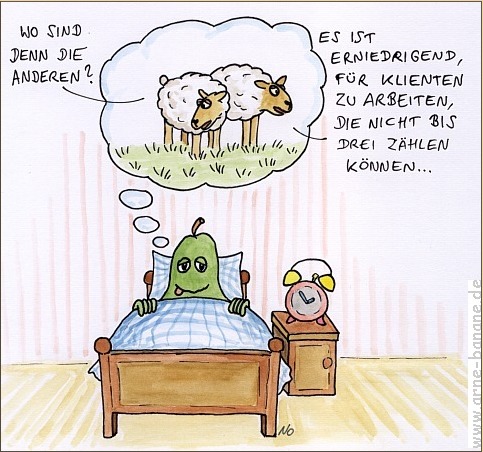 WO SIND
DENN DIE
ANDEREN?
ES IST
ERNIEDRIGEND,
FÜR KLIENTEN
ZU ARBEITEN,
DIE NICHT BIS
DREI ZÄHLEN
KÖNNEN...
NO
www.arne-banane.de